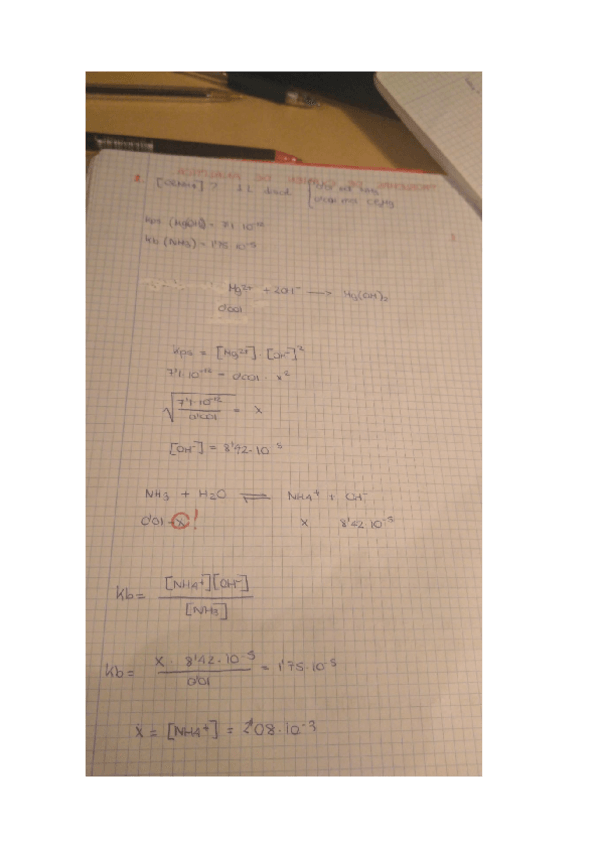 [NH4+] ? 1L disol
Kps (Mg(OH)2) = 7'1·10-12
Kb (NH3) = 1'75·10-5
Mg2+ + 2OH- → Mg(OH)2
0'001
Kps = [Mg2+]·[OH-]2
7'1·10-12 = 0'001 · x2
√7'1·10-12/0'001 = x
[OH-] = 8'42·10-5
NH3 + H2O ⇌ NH4+ + OH-
0'01-x! x 8'42·10-5
Kb = [NH4+][OH-]/[NH3]
Kb = x · 8'42·10-5/0'01 = 1'75·10-5
x = [NH4+] = 2'08·10-3